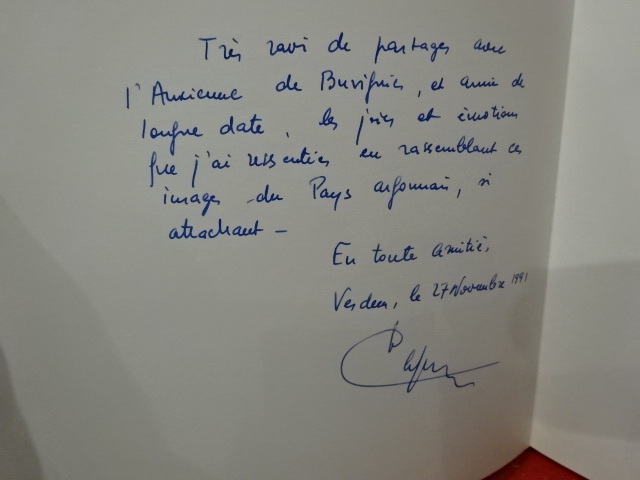 Très ravi de partager avec
l'Ancienne de Buvignies, et amie de
longue date, les joies et émotions
que j'ai ressenties en rassemblant ces
images du Pays argonnais, si
attachant -
En toute amitié,
Verdun, le 27 Novembre 1991